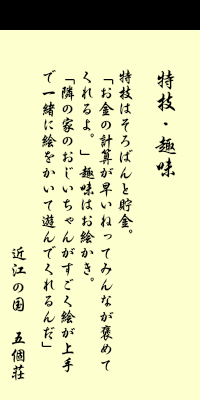 特技・趣味
特技はそろばんと貯金。
「お金の計算が早いねってみんなが褒めて
くれるよ。」趣味はお絵かき。
「隣の家のおじいちゃんがすごく絵が上手
で一緒に絵をかいて遊んでくれるんだ」
近江の国　五個荘